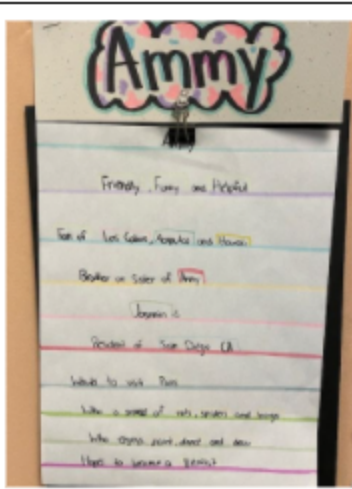 Ammy
Ammy
Friendly, Funny and Helpful
Fan of Los Cabos, Acapulco and Hawaii
Brother or Sister of Amy
is
Resident of San Diego CA
Wants to visit Paris
Who is of rats, and bugs
Who enjoys paint, and draw
Hopes to become a